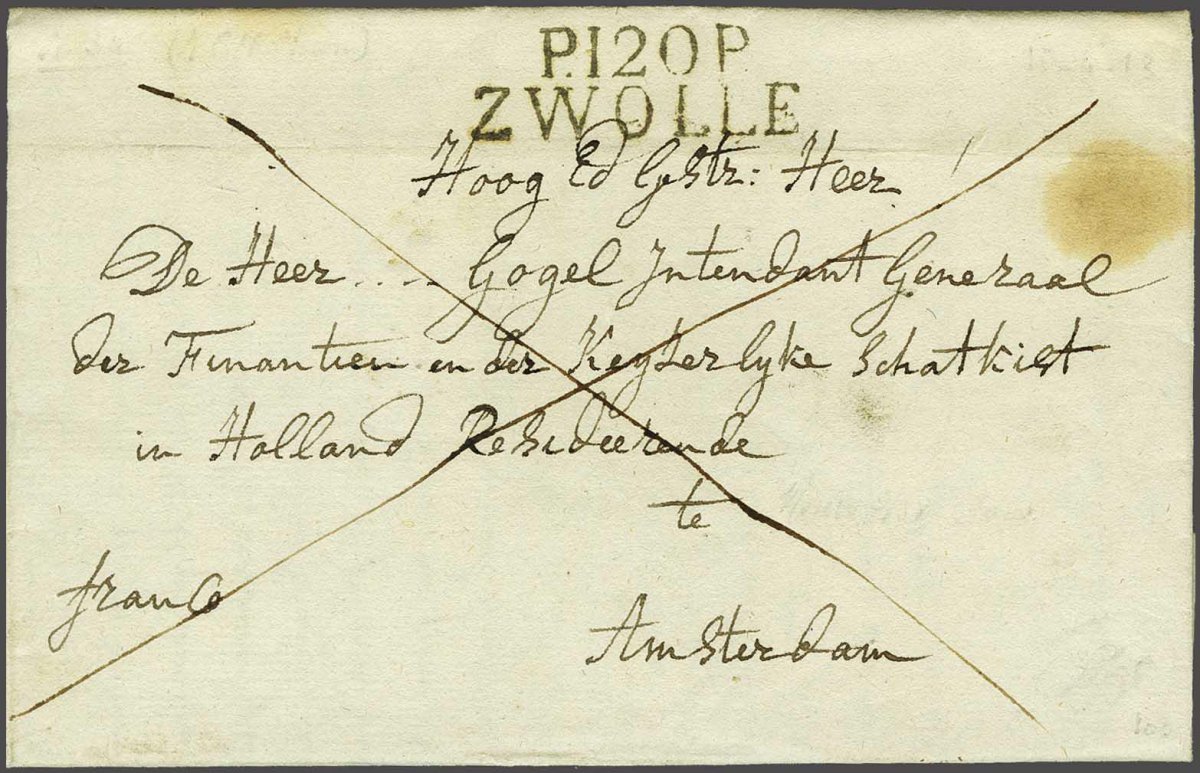 P.120P.
ZWOLLE
Hoog Ed Gestr: Heer
De Heer .... Gogel Intendant Generaal
der Finantien en der Keyserlyke Schatkist
in Holland Resideerende
te
franco
Amsterdam